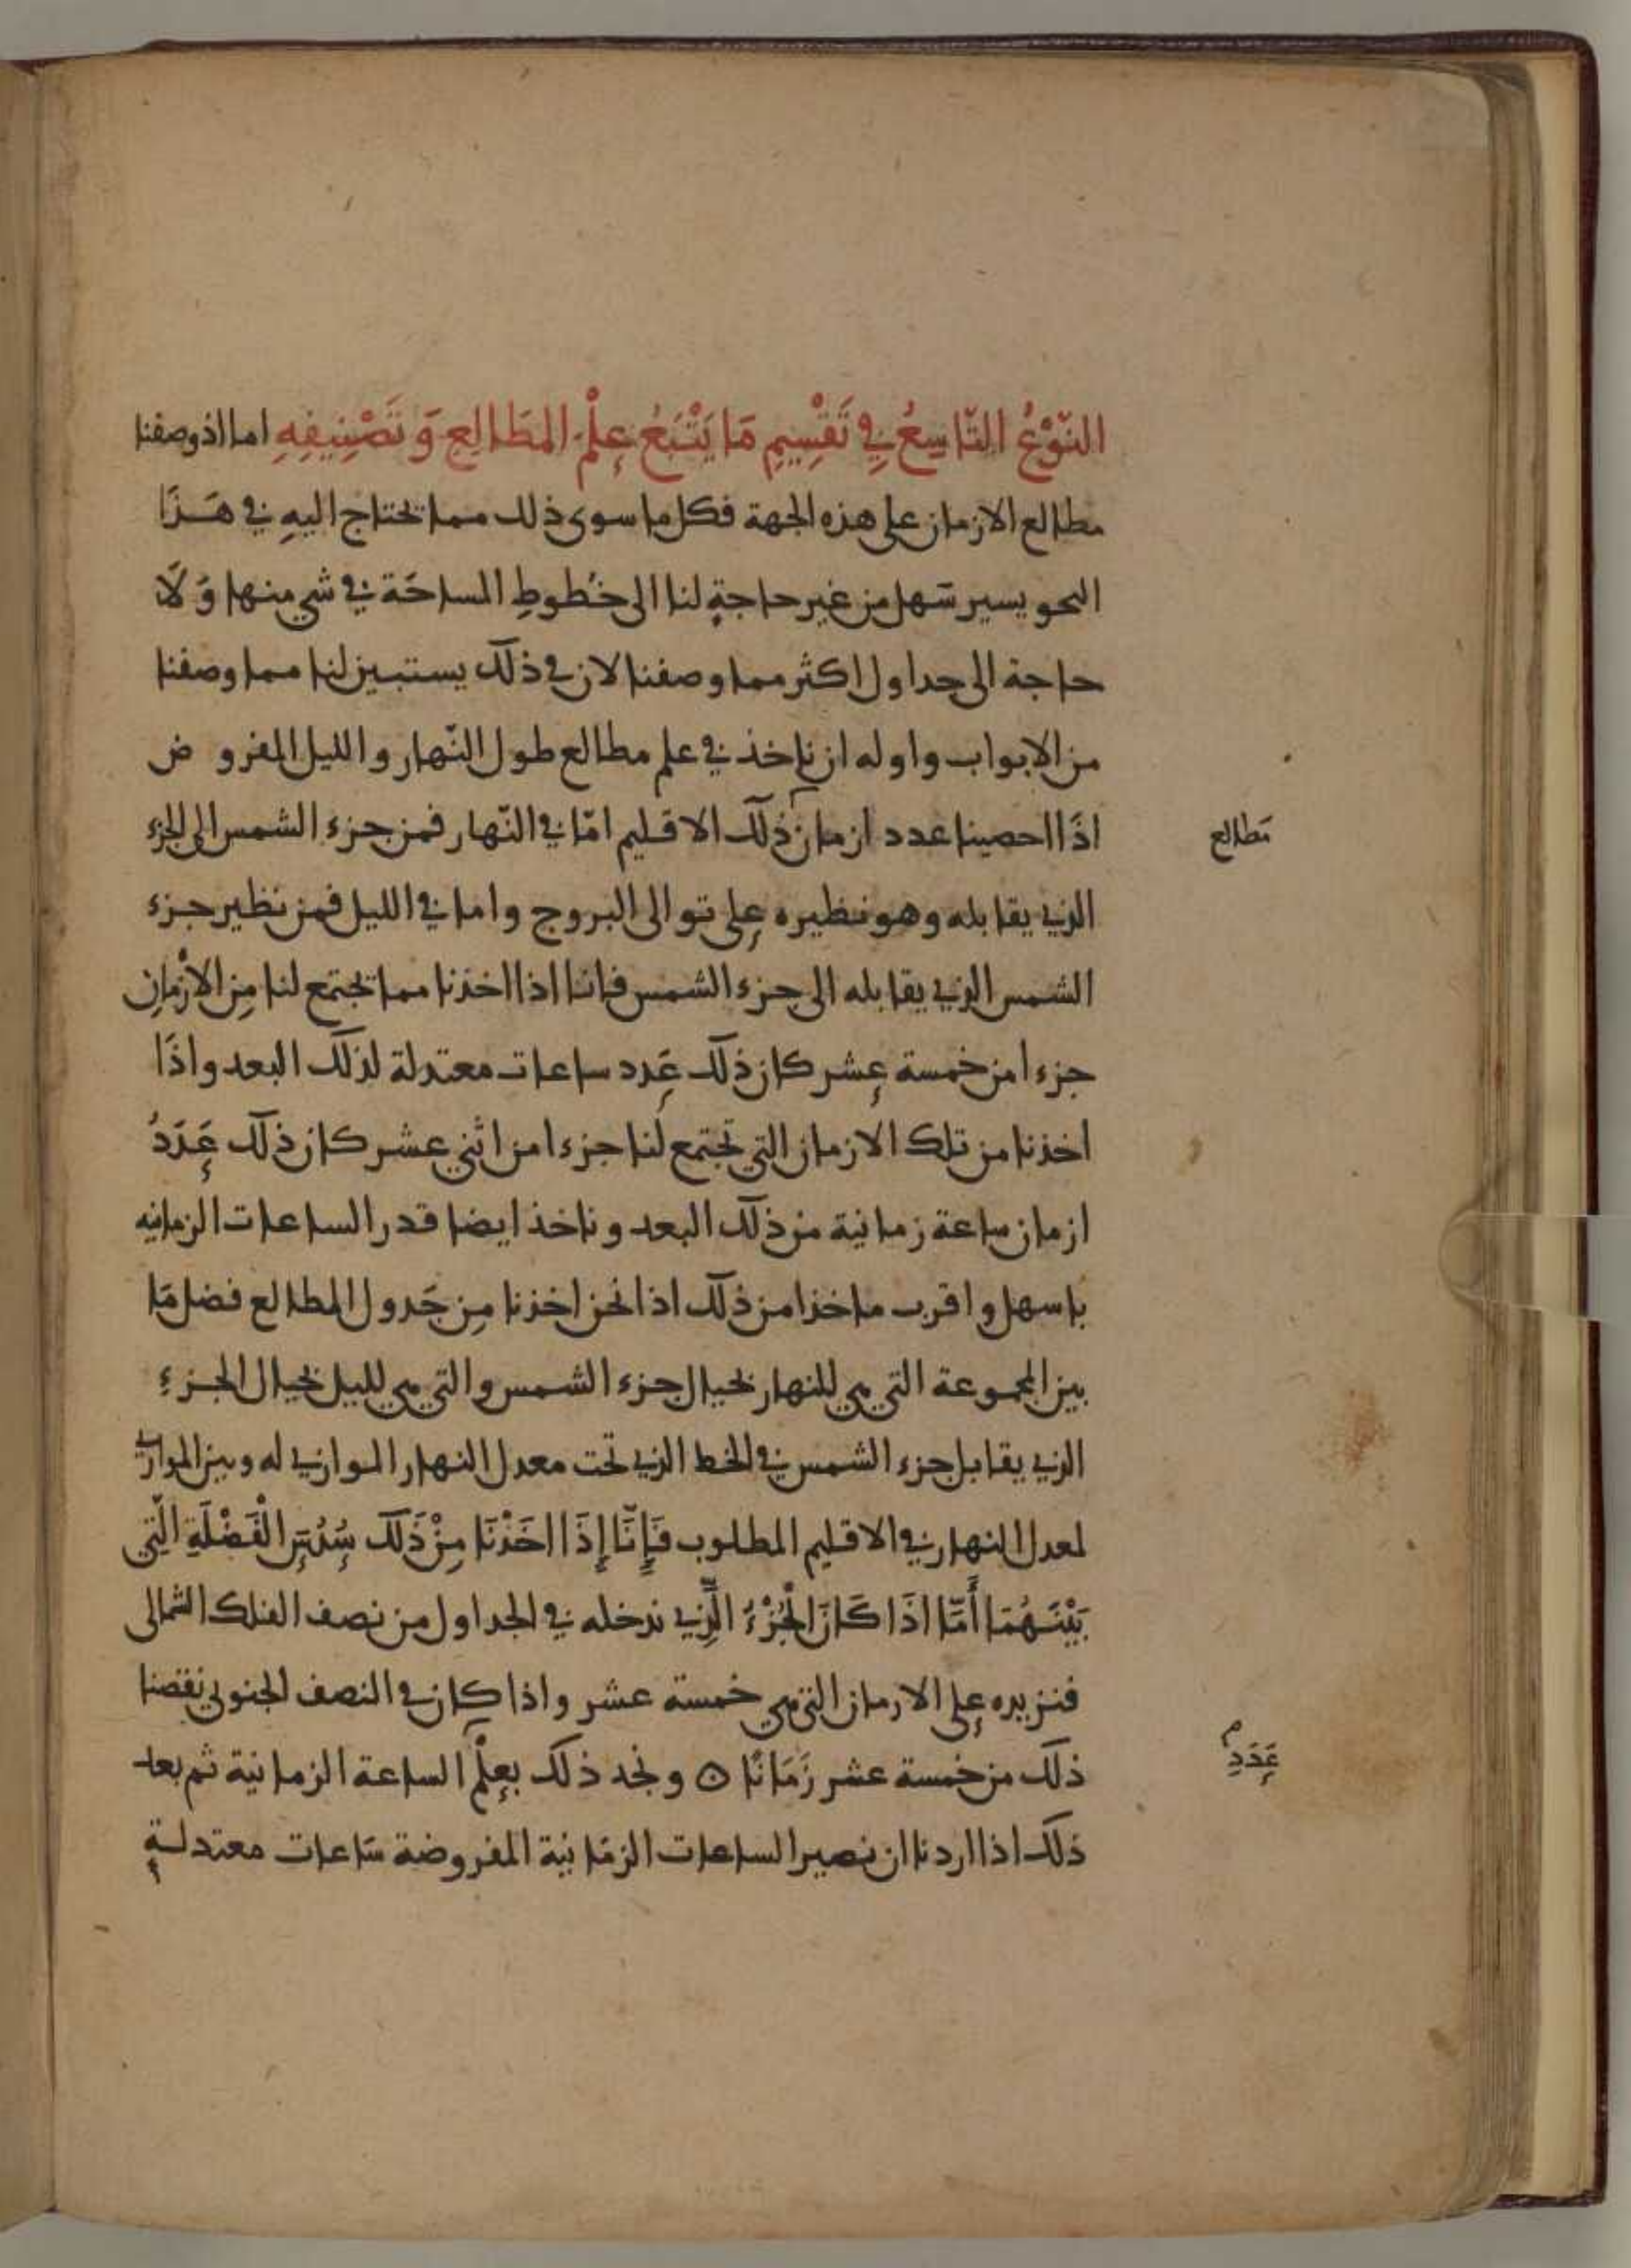 النّوْعُ التّاسِعُ فِي تَقْسِيمِ مَا يَتْبَعُ عِلْمَ المطَالِعِ وَتَصْنِيفِهِ اما اذ وصفنا
مطالع الازمان على هذه الجهة فكل ما سوى ذلك مما يحتاج اليهِ في هَذَا
النحو يسير سَهل من غير حاجةٍ لنا الى خُطوطِ المساحَة في شي منها وَلَا
حاجة الى جداول اكثر مما وصفنا لان في ذلك يستبين لنا مما وصفنا
من الابواب واوله ان ناخذ في علم مطالع طول النّهار والليل المفروض
اذَا احصينا عدد ازمان ذلك الاقليم امّا في النّهار فمن جزء الشمس الى الجزء
مَطالع
الذي يقابله وهو نظيره على توالى البروج واما في الليل فمن نظير جزء
الشمس الذي يقابله الى جزء الشمس فاننا اذا اخذنا مما تجتمع لنا مِن الأزْمانِ
جزءا من خمسة عشر كان ذلك عَدد ساعات معتدلة لذلك البعد واذَا
اخذنا من تلك الازمان التي تجتمع لنا جزءا من اثني عشر كان ذلك عَدَدُ
ازمان ساعة زمانية من ذلك البعد وناخذ ايضا قدر الساعات الزمانيه
باسهل واقرب ماخذا من ذلك اذا نحن اخذنا مِن جَدول المطالع فضل مَا
بين المجموعة التي هي للنهار بحيال جزء الشمس والتي هي لليل بحيال الجزءِ
الذي يقابل جزء الشمس في الخط الذي تحت معدل النهار الموازي له وبين الموازي
لمعدل النهار في الاقليم المطلوب فَإِنّا إِذَا اخَذْنَا مِنْ ذَلك سُدُسَ الْفَضْلَةِ الّتِي
بَيْنَهُمَا أَمّا اذَا كَانَ الْجُزْءُ الّذِي ندخله في الجداول من نصف الفلك الشمالى
فنزيده على الازمان التي هي خمسة عشر واذا كان في النصف الجنوبي نقصنا
ذلك من خمسة عشر زَمَانًا ۞ ونجد ذلك بعِلْم الساعة الزمانية ثم بعد
عَدَدِ
ذلك اذا اردنا ان نصير الساعات الزمَانية المفروضة سَاعات معتدلةٍ